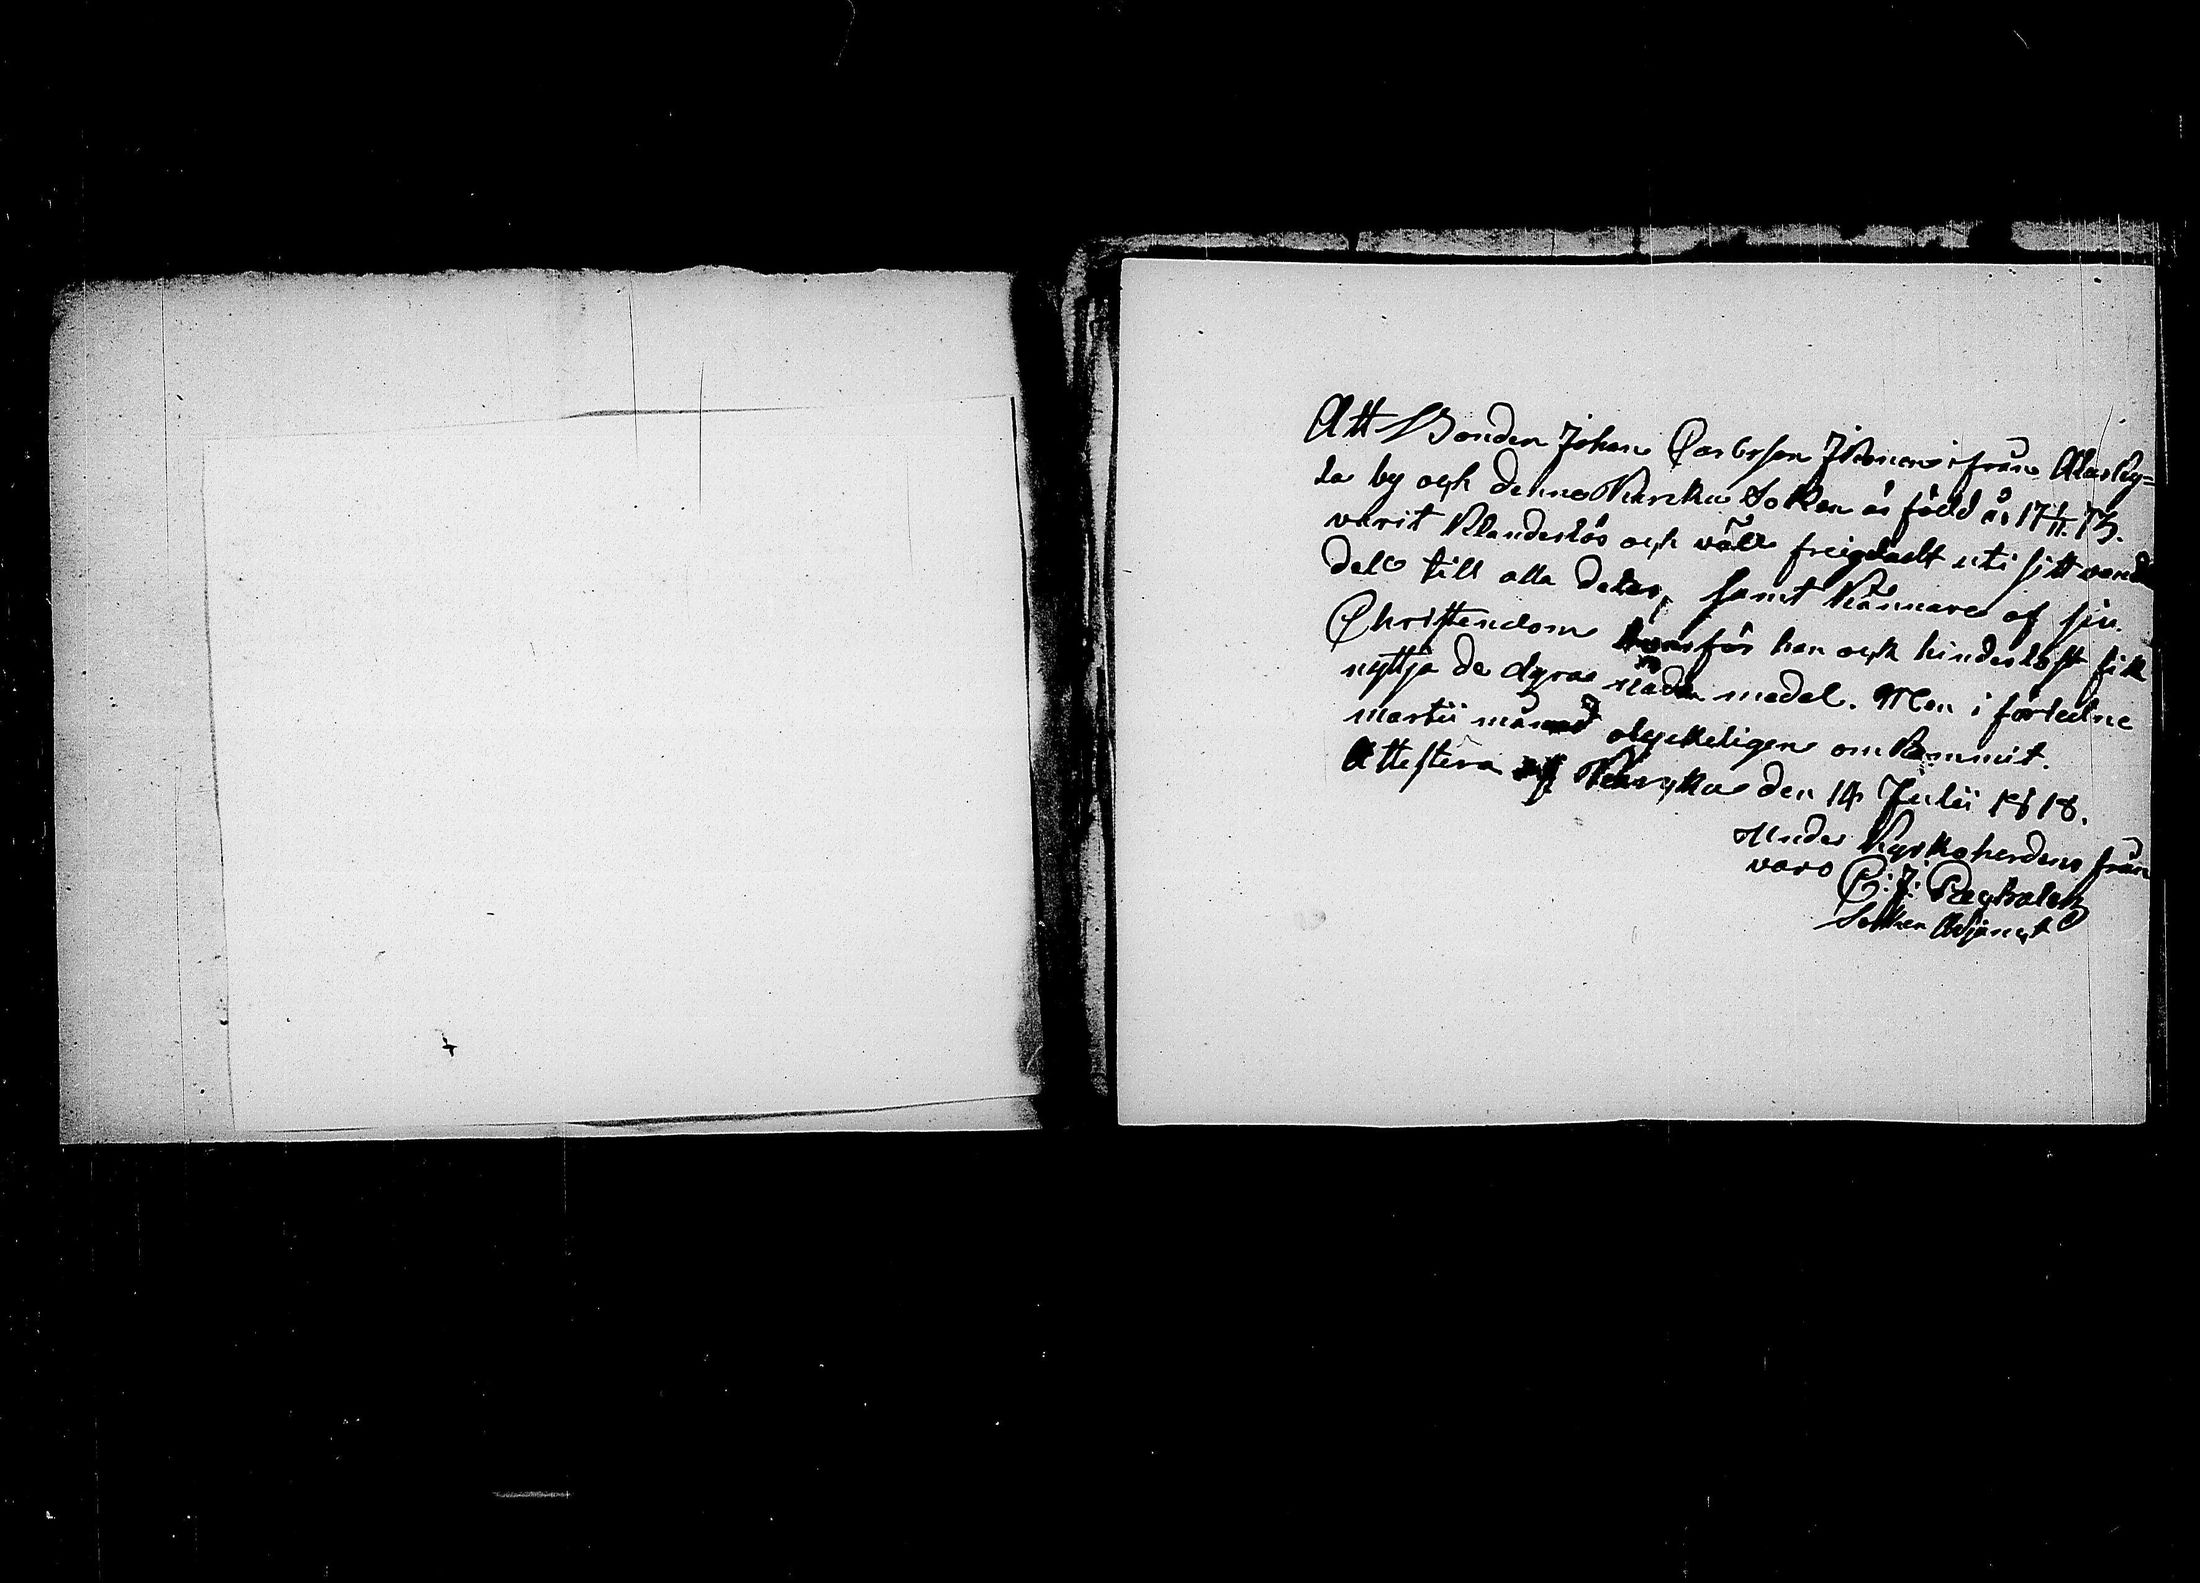 Att Bonden Johan Carlsson Ikonen ifrån Alasky=
la by och denna Kurcku Sokn är född år 17 1/11 73.
varit Klanderlös och väll freigdadt uti sitt vand
del till alla delar, samt kännare af sin
Christendom hvarför han och hinderlöst fik
nyttja de dyra nåda medel. Men i förledne
martii månad olyckeligen omkommit.
Attestera Kurcku den 14 Julii 1818.
Under Kyrkoherdens från
varo C: J:
Sokken Adjunct